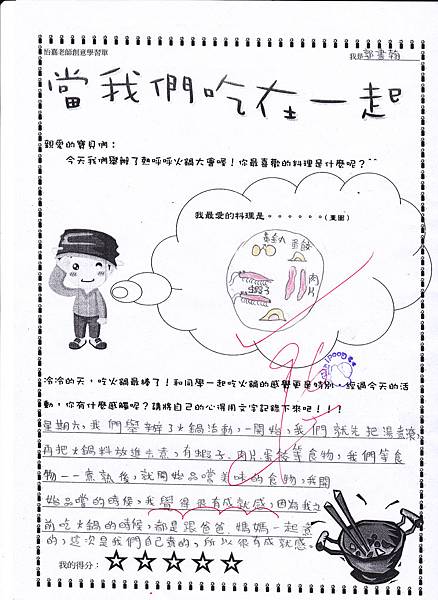 怡嘉老師創意學習單
我是郭書翰
當我們吃在一起
親愛的寶貝們：
今天我們舉辦了熱呼呼火鍋大會喔！你最喜歡的料理是什麼呢？^^
我最愛的料理是。。。。。。(畫圖)
蛋餃
肉片
蝦子
冷冷的天，吃火鍋最棒了！和同學一起吃火鍋的感覺更是特別，經過今天的活
動，你有什麼感觸呢？請將自己的心得用文字記錄下來吧！！！
星期六，我們舉辦了火鍋活動，一開始，我們就先把湯煮滾，
再把火鍋料放進去煮，有蝦子、肉片、蛋餃等食物，我們等食
物一一煮熟後，就開始品嚐美味的食物，我開
始品嚐的時候，我覺得很有成就感，因為我之
前吃火鍋的時候，都是跟爸爸、媽媽一起煮
的，這次是我們自己煮的，所以很有成就感。
我的得分：☆☆☆☆☆